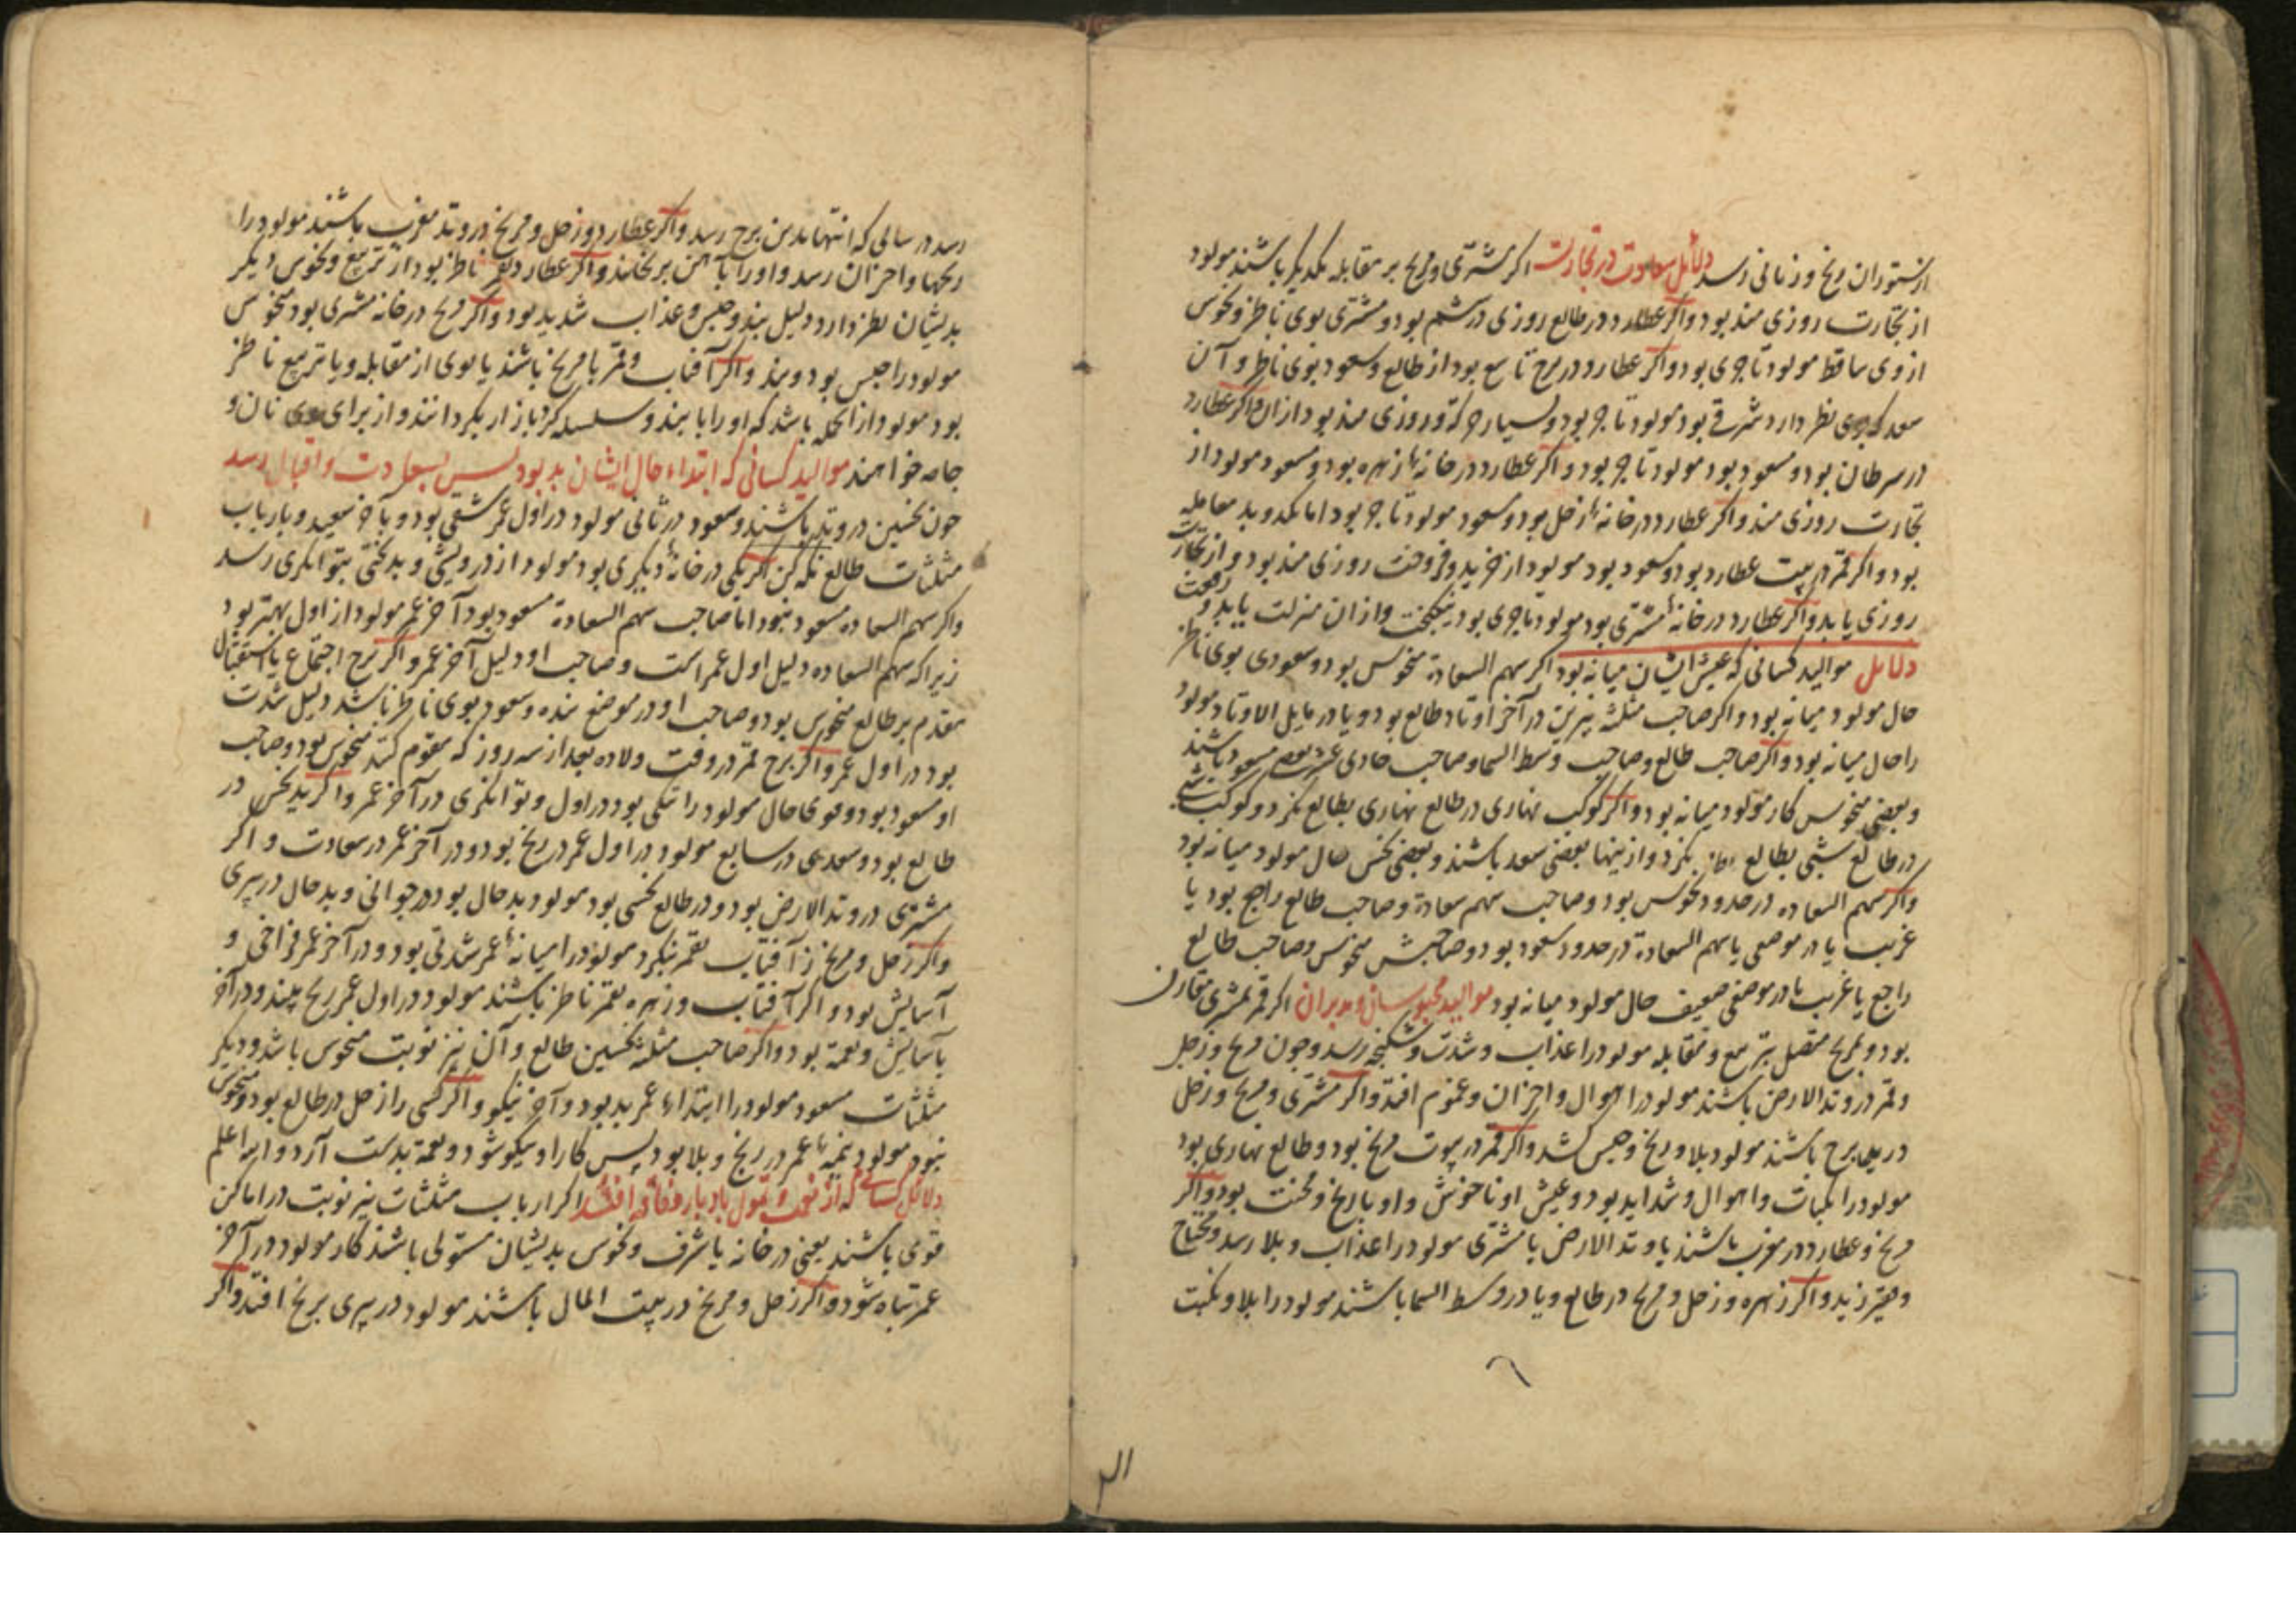 از ستوران رنج و زیانی رسد دلائل سعادت در تجارت اکر مشتری و مریخ بر مقابله یکدیکر باشند مولود
از تجارت روزی مند بود و اکر عطارد در طالع روزی در ششم بود و مشتری بوی ناظر و نحوس
از وی ساقط مولود تاجری بود و اکر عطارد در برج تاسع بود از طالع و سعود بوی ناظر و آن
سعد که بوی نظر دارد شرقی بود مولود تاجر بود و بسیار حرکة و روزی مند بود ازان و اکر عطارد
در سرطان بود و مسعود بود مولود تاجر بود و اکر عطارد در خانهٔ زهره بود و مسعود مولود از
تجارت روزی مند و اکر عطارد در خانهٔ زحل بود و مسعود مولود تاجر بود اما مکد و بد معامله
بود و اکر قمر در بیت عطارد بود و مسعود بود مولود از خرید و فروخت روزی مند بود و از تجارت
روزی یابد و اکر عطارد در خانهٔ مشتری بود مولود تاجری بود نیکبخت و ازان منزلت یابد و رفعت
دلایل موالید کسانی که عیش ایشان میانه بود اکر سهم السعادة منحوس بود و سعودی بوی ناظر
حال مولود میانه بود و اکر صاحب مثلثه نیرین در آخر اوتاد طالع بود و یا در مایل الاوتاد مولود
را حال میانه بود و اکر صاحب طالع و صاحب وسط السما و صاحب حادی عشر بعضی مسعود باشند
و بعضی منحوس کار مولود میانه بود و اکر کوکب نهاری در طالع نهاری بطالع نکرد و کوکب شبی
در طالع شبی بطالع نکرد و ازینها بعضی سعد باشند و بعضی نحس حال مولود میانه بود
و اکر سهم السعاده در حدود نحوس بود و صاحب سهم سعادة و صاحب طالع راجع بود یا
غریب یا در موضعی یا سهم السعادة در حدود سعود بود و صاحبش منحوس و صاحب طالع
راجع یا غریب یا در موضعی ضعیف حال مولود میانه بود موالید محبوسان و مدبران اکر قمر بمشتری مقارن
بود و بمریخ متصل بتربیع و مقابله مولود را عذاب و شدت و شکنجه رسد و چون مریخ و زحل
و قمر در وتد الارض باشند مولود را اهوال و احزان و غموم افتد و اکر مشتری و مریخ و زحل
در یک برج باشند مولود بلا و رنج و حبس کشد و اکر قمر در بیوت مریخ بود و طالع نهاری بود
مولود را نکبات و اهوال و شداید بود و عیش او ناخوش و او با رنج و محنت بود و اکر
مریخ و عطارد در مغرب باشند یا وتد الارض با مشتری مولود را عذاب و بلا رسد و محتاج
و حقیر زید و اکر زهره و زحل و مریخ در طالع و یا در وسط السما باشند مولود را بلا و نکبت
رسد در سالی که انتها بدین برج رسد و اکر عطارد و زحل و مریخ در وتد مغرب باشند مولود را
رنجها و احزان رسد و او را بآهن برنجانند و اکر عطارد بقمر ناظر بود از تربیع و نحوس دیکر
بدیشان نظر دارد دلیل بند و حبس و عذاب شدید بود و اکر مریخ در خانه مشتری بود منحوس
مولود را حبس بود و بند و اکر آفتاب و قمر با مریخ باشند یا بوی از مقابله و یا تربیع ناظر
بود مولود از انجمله باشد که او را با بند و سلسله کرد بازار بکردانند و از برای وی نان و
جامه خواهند موالید کسانی که ابتداء حال ایشان بد بود بس بسعادت و اقبال رسد
چون نحسین در وتد باشند و سعود در ثانی مولود در اول عمر شقی بود و بآخر سعید و بارباب
مثلثات طالع نکه کن اکر یکی در خانهٔ دیکری بود مولود از درویشی و بدبختی بتوانکری رسد
و اکر سهم السعاده مسعود نبود اما صاحب سهم السعادة مسعود بود آخر عمر مولود از اول بهتر بود
زیرا که سهم السعاده دلیل اول عمر است و صاحب او دلیل آخر عمر و اکر برج اجتماع یا استقبال
مقدم بر طالع منحوس بود و صاحب او در موضع بد و سعود بوی ناظر باشد دلیل شدت
بود در اول عمر و اکر برج قمر در وقت ولاده بعد از سه روز که مقوم کنند منحوس بود و صاحب
او مسعود بود و قوی حال مولود را تنکی بود در اول و توانکری در آخر عمر و اکر نحس در
طالع بود و سعدی در سابع مولود در اول عمر در رنج بود و در آخر عمر در سعادت و اکر
مشتری در وتد الارض بود و در طالع نحسی بود مولود بدحال بود در جوانی و بدحال در پیری
و اکر زحل و مریخ از آفتاب بقمر نکرد مولود را میانهٔ عمر شدتی بود و در آخر عمر فراخی و
آسایش بود و اکر آفتاب و زهره بقمر ناظر باشند مولود در اول عمر رنج بیند و در آخر
بآسایش و نعمة بود و اکر صاحب مثلثه نخستین طالع و آن نیر نوبت منحوس باشد و دیکر
مثلثات مسعود مولود را ابتداء عمر بد بود و آخر نیکو و اکر کسی را زحل در طالع بود و منحوس
نبود مولود نیمهٔ عمر در رنج و بلا بود پس کار او نیکو شود و نعمة بدست آرد و الله اعلم
دلائل کسانی که از نعمت و تمول بادبار و فاقه افتند اکر ارباب مثلثات نیر نوبت در اماکن
قوی باشند یعنی در خانه یا شرف و نحوس بدیشان مستولی باشند کار مولود در آخر
عمر تباه شود و اکر زحل و مریخ در بیت المال باشند مولود در پیری برنج افتد و اکر